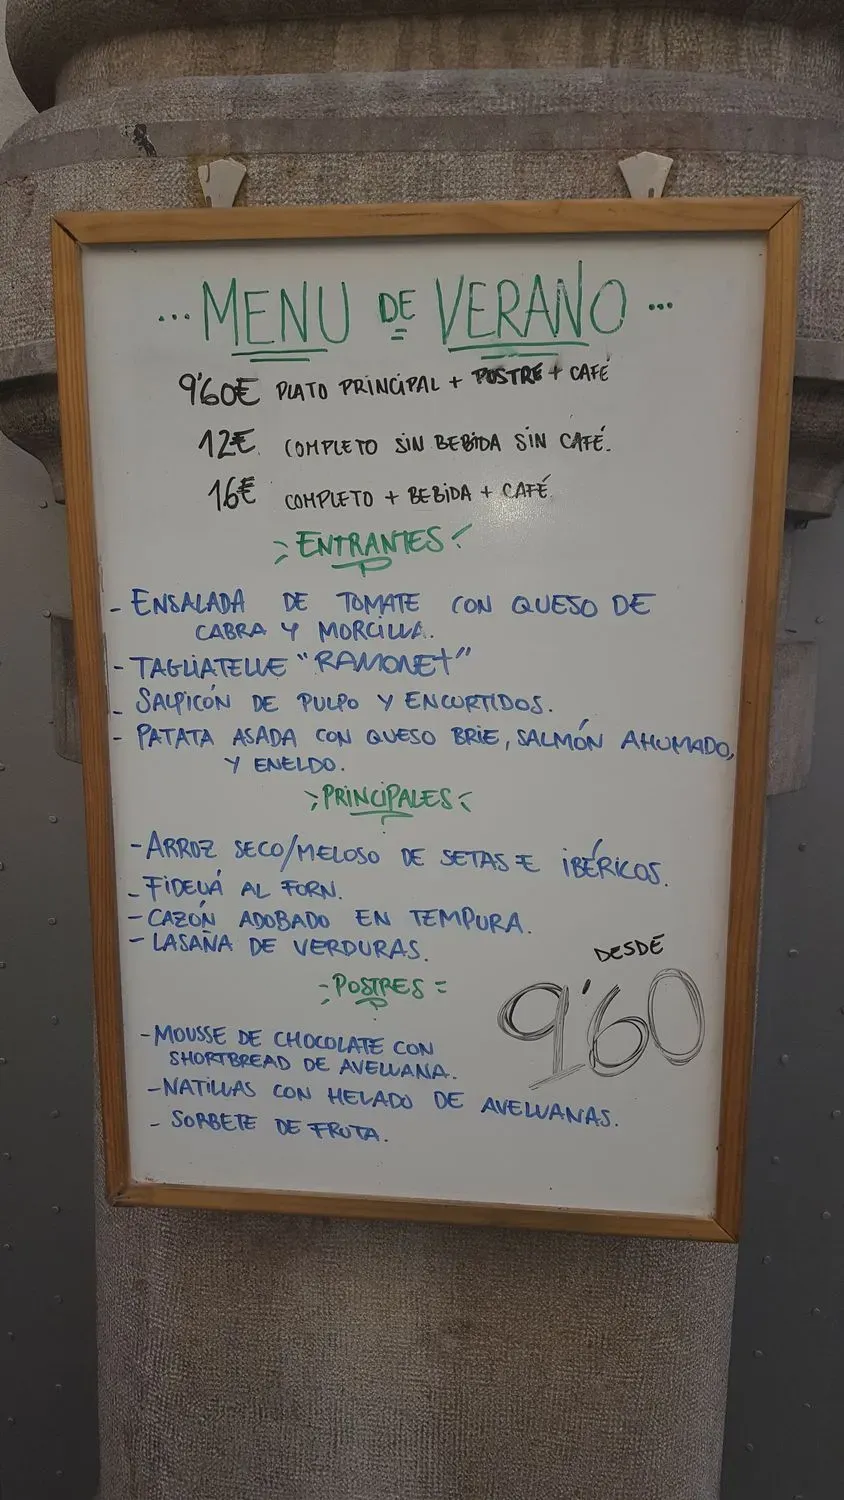 ... MENU DE VERANO ...
9'60€ PLATO PRINCIPAL + POSTRE + CAFÉ
12€ COMPLETO SIN BEBIDA SIN CAFÉ.
16€ COMPLETO + BEBIDA + CAFÉ
ENTRANTES
- ENSALADA DE TOMATE CON QUESO DE
CABRA Y MORCILLA.
- TAGLIATELLE "RAMONET"
- SALPICÓN DE PULPO Y ENCURTIDOS.
- PATATA ASADA CON QUESO BRIE, SALMÓN AHUMADO,
Y ENELDO.
PRINCIPALES
- ARROZ SECO/MELOSO DE SETAS E IBÉRICOS.
- FIDEUÁ AL FORN.
- CAZÓN ADOBADO EN TEMPURA.
- LASAÑA DE VERDURAS.
DESDE
9'60
- POSTRES =
- MOUSSE DE CHOCOLATE CON
SHORTBREAD DE AVELLANA.
- NATILLAS CON HELADO DE AVELLANAS.
- SORBETE DE FRUTA.